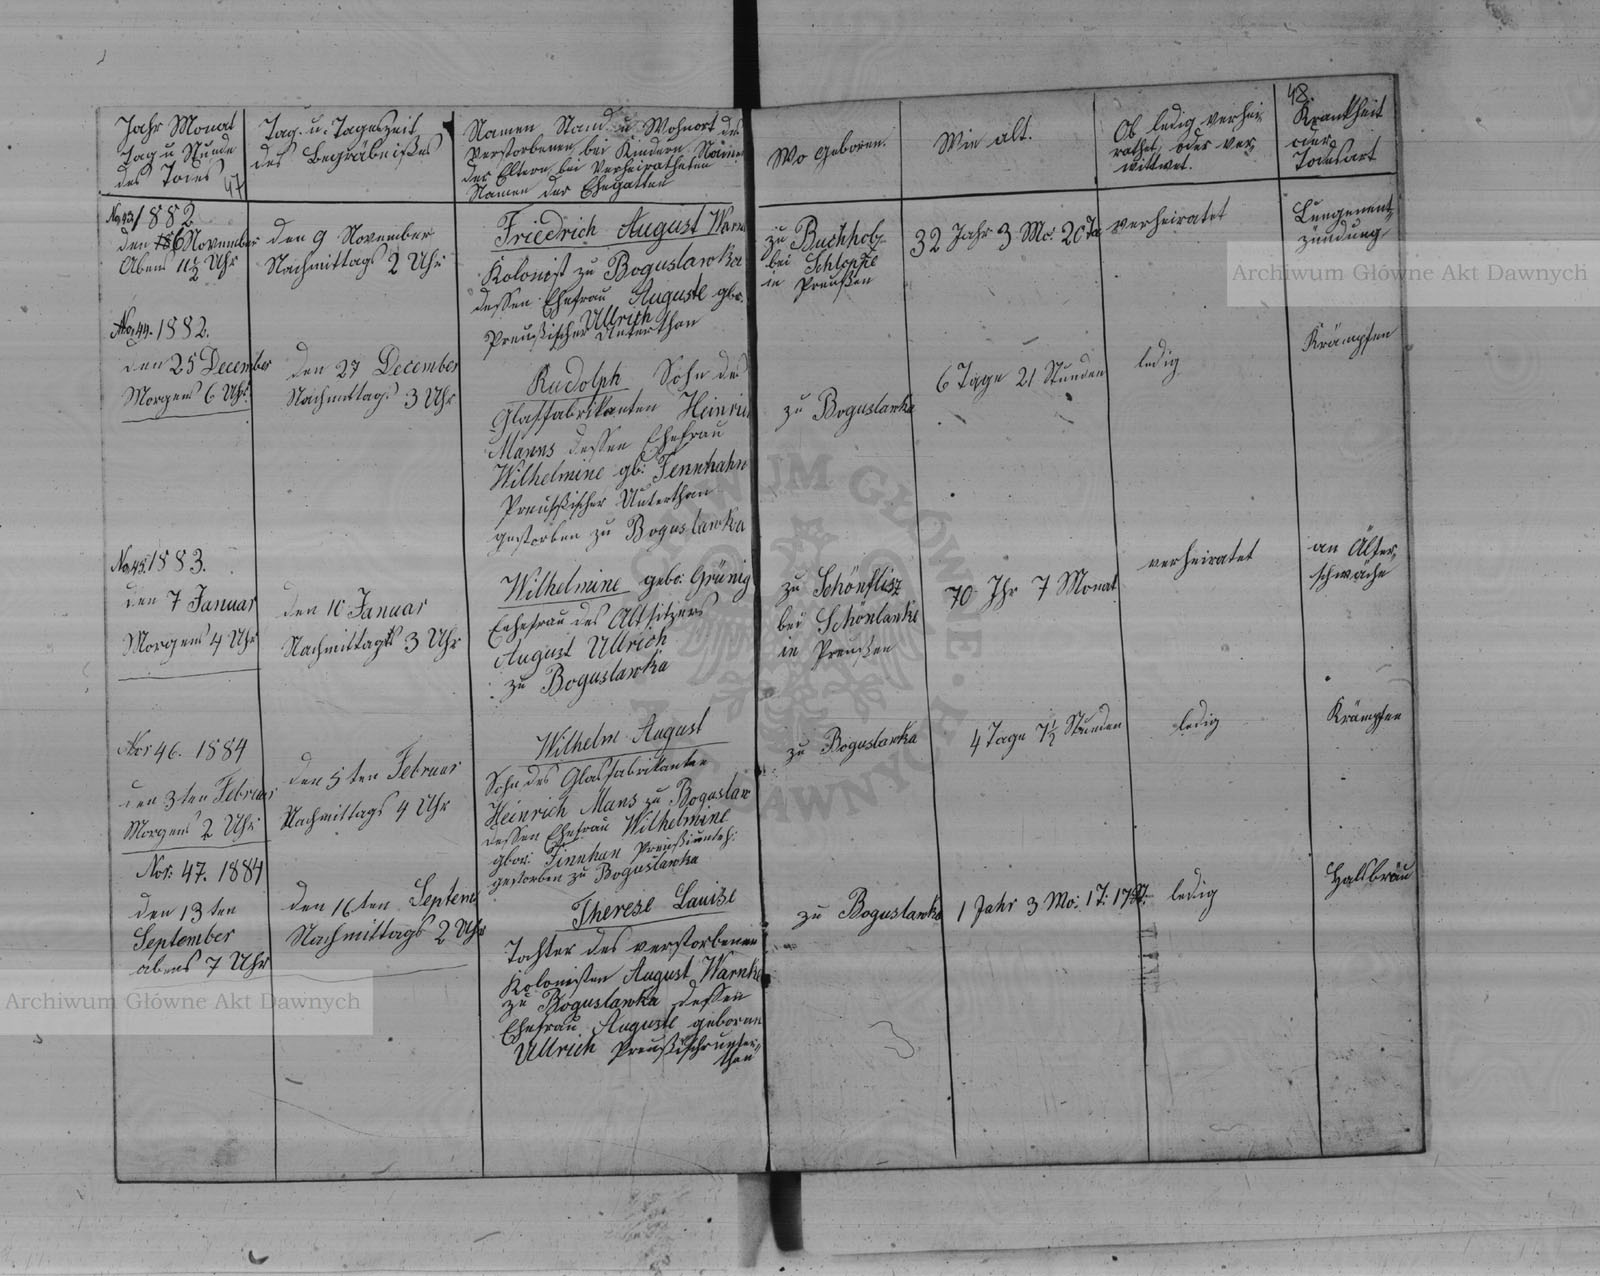 Jahr Monat
Tag u Stunde
des Todes
47
Tag. u. Tageszeit
des Begräbnißes
Namen Stand u Wohnort des
Verstorbenen bei Kindern Namen
der Eltern bei Verheiratheten
Namen der Ehegatten
Wo Geboren.
Wie alt.
Ob ledig verhei
rathet, oder ver
wittwet.
48.
Krankheit
oder
Todesart
No 43. 1882
den 6 November
Abens 11½ Uhr
den 9 November
Nachmittags 2 Uhr
Friedrich August Warn
Kolonist zu Boguslawka
dessen Ehefrau Auguste gbr.
Ullrich
Preußischer Unterthan
zu Buchholz
bei Schloppe
in Preußen
32 Jahr 3 Mo: 20 Ta
verheiratet
Lungenent
zündung
No 44. 1882.
den 25 December
Morgens 6 Uhr.
den 27 December
Nachmittags 3 Uhr
Rudolph Sohn des
Glasfabrikanten Heinrich
Manns dessen Ehefrau
Wilhelmine gb: Tennhahn
Preußischer Unterthan
gestorben zu Boguslawka
zu Boguslawka
6 Tage 21 Stunden
ledig
Krämpfen
No 45. 1883.
den 7 Januar
Morgens 4 Uhr
den 10 Januar
Nachmittags 3 Uhr
Wilhelmine gebo: Grünig
Ehefrau des Altsitzers
August Ullrich
zu Boguslawka
zu Schönfliß
bei Schönlanke
in Preußen
70 Jhr 7 Monat
verheiratet
an Alter,
schwäche
Nor 46. 1884
den 3ten Februar
Morgens 2 Uhr
den 5ten Februar
Nachmittags 4 Uhr
Wilhelm August
Sohn des Glasfabrikanten
Heinrich Mans zu Boguslaw
dessen Ehefrau Wilhelmine
gbor: Tinnhan Preußiunteh:
gestorben zu Boguslawka
zu Boguslawka
4 Tage 7½ Stunden
ledig
Krämpfen
Nor: 47. 1884
den 13ten
September
abens 7 Uhr
den 16ten Septem
Nachmittags 2 Uhr
Therese Lauise
Tochter des verstorbenen
Kolonisten August Warnke
zu Boguslawka dessen
Ehefrau Auguste geboren
Ullrich Preußischrunter,
than
zu Boguslawka
1 Jahr 3 Mo: 1 T:
ledig
Halsbräu
Archiwum Główne Akt Dawnych
Archiwum Główne Akt Dawnych
ARCHIWUM GŁÓWNE AKT DAWNYCH